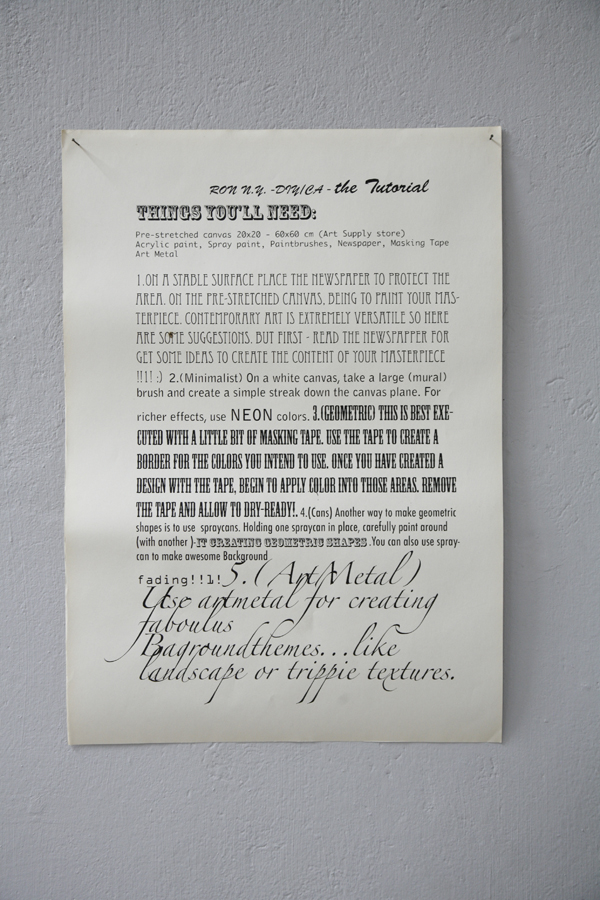 RON N.Y. -DIY/CA - the Tutorial
THINGS YOU'LL NEED:
Pre-stretched canvas 20x20 - 60x60 cm (Art Supply store)
Acrylic paint, Spray paint, Paintbrushes, Newspaper, Masking Tape
Art Metal
1.ON A STABLE SURFACE PLACE THE NEWSPAPER TO PROTECT THE
AREA. ON THE PRE-STRETCHED CANVAS, BEING TO PAINT YOUR MAS-
TERPIECE. CONTEMPORARY ART IS EXTREMELY VERSATILE SO HERE
ARE SOME SUGGESTIONS. BUT FIRST - READ THE NEWSPAPPER FOR
GET SOME IDEAS TO CREATE THE CONTENT OF YOUR MASTERPIECE
!!1! :) 2.(Minimalist) On a white canvas, take a large (mural)
brush and create a simple streak down the canvas plane. For
richer effects, use NEON colors. 3.(GEOMETRIC) THIS IS BEST EXE-
CUTED WITH A LITTLE BIT OF MASKING TAPE. USE THE TAPE TO CREATE A
BORDER FOR THE COLORS YOU INTEND TO USE. ONCE YOU HAVE CREATED A
DESIGN WITH THE TAPE, BEGIN TO APPLY COLOR INTO THOSE AREAS. REMOVE
THE TAPE AND ALLOW TO DRY-READY!. 4.(Cans) Another way to make geometric
shapes is to use spraycans. Holding one spraycan in place, carefully paint around
(with another )-IT CREATING GEOMETRIC SHAPES .You can also use spray-
can to make awesome Background
fading!!1!5.(ArtMetal)
Use artmetal for creating
faboulus
Bagroundthemes...like
landscape or trippie textures.